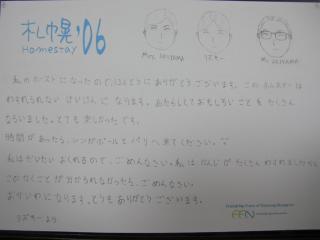 札幌'06
Homestay
Mrs. AKIYAMA
リズキー
Mr. AKIYAMA
私のホストになったので、ほんとうにありがとうございます。このホムステーは
わすれられない けいけんに なります。あたらしくておもしろいことを たくさん
ならいました。とても 楽しかったです。
時間があったら、シンガポールと バリへ 来てください。
私はだいたい おくれるので、ごめんなさい。私は かんじが たくさん わすれましたから
かくことが 分かられなかったら、ごめんなさい。
おせわに なります。どうも ありがとう ございます。
リズキー より